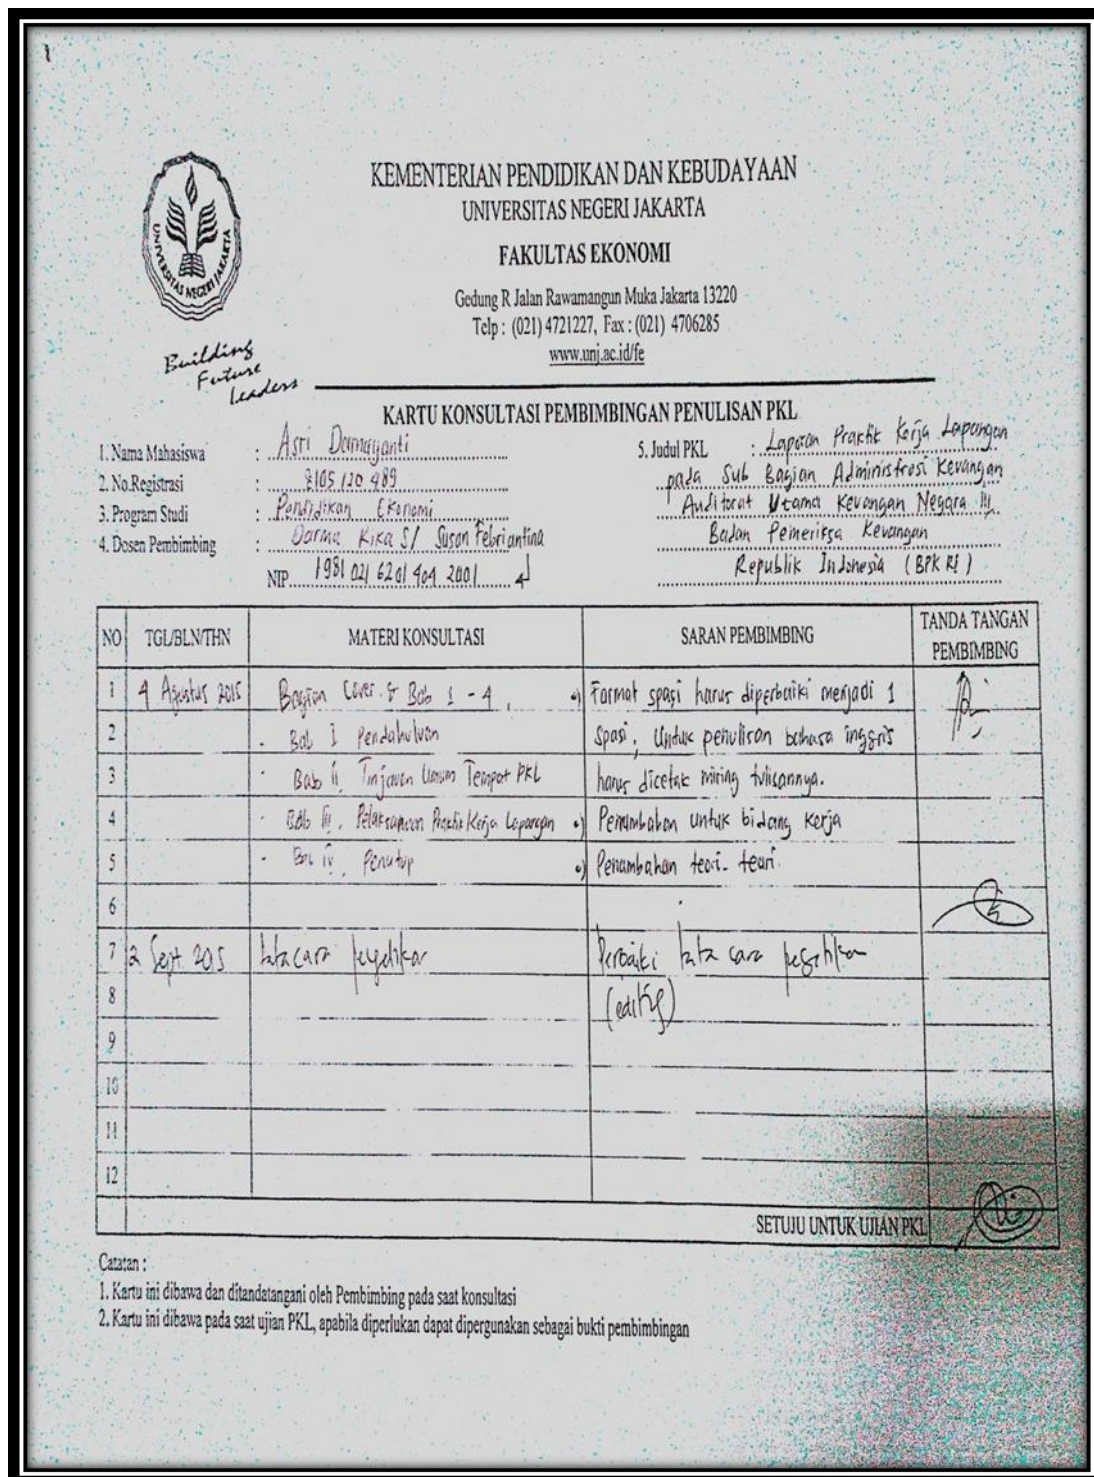 UNIVERSITAS NEGERI JAKARTA
Building
Future
Leaders
KEMENTERIAN PENDIDIKAN DAN KEBUDAYAAN
UNIVERSITAS NEGERI JAKARTA
FAKULTAS EKONOMI
Gedung R Jalan Rawamangun Muka Jakarta 13220
Telp : (021) 4721227, Fax : (021) 4706285
www.unj.ac.id/fe
KARTU KONSULTASI PEMBIMBINGAN PENULISAN PKL
1. Nama Mahasiswa : Asri Damayanti
2. No.Registrasi : 8105 120 489
3. Program Studi : Pendidikan Ekonomi
4. Dosen Pembimbing : Darma Rika S/ Susan Febriantina
NIP 1981 021 6201 404 2001
5. Judul PKL : Laporan Praktik Kerja Lapangan
pada Sub Bagian Administrasi Keuangan
Auditorat Utama Keuangan Negara III
Badan Pemeriksa Keuangan
Republik Indonesia (BPK RI)
NO TGL/BLN/THN MATERI KONSULTASI SARAN PEMBIMBING TANDA TANGAN PEMBIMBING
1 4 Agustus 2015 Bagian Cover & Bab 1 - 4, •) Format spasi harus diperbaiki menjadi 1
2 - Bab I Pendahuluan spasi, Untuk penulisan bahasa inggris
3 - Bab II, Tinjauan Umum Tempat PKL harus dicetak miring tulisannya.
4 - Bab III, Pelaksanaan Praktik Kerja Lapangan •) Penambahan untuk bidang kerja
5 - Bab IV, Penutup •) Penambahan teori-teori.
6
7 2 Sept. 2015 tata cara pengetikan Perbaiki tata cara pengetikan
8 (editing)
9
10
11
12
SETUJU UNTUK UJIAN PKL
Catatan :
1. Kartu ini dibawa dan ditandatangani oleh Pembimbing pada saat konsultasi
2. Kartu ini dibawa pada saat ujian PKL, apabila diperlukan dapat dipergunakan sebagai bukti pembimbingan